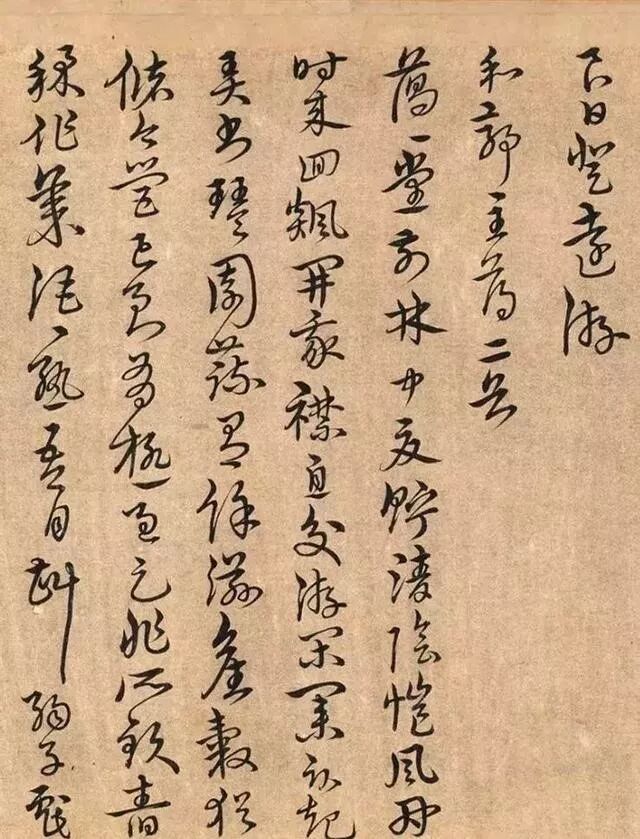 良日登遠游
和郭主簿二首
藹〻堂前林中夏貯清陰愷風因
時來回飆開我襟息交游閑業臥起
弄書琴園蔬有餘滋舊穀猶
儲今營己良有極過足非所欽舂
秫作美酒〻熟吾自斟弱子戲